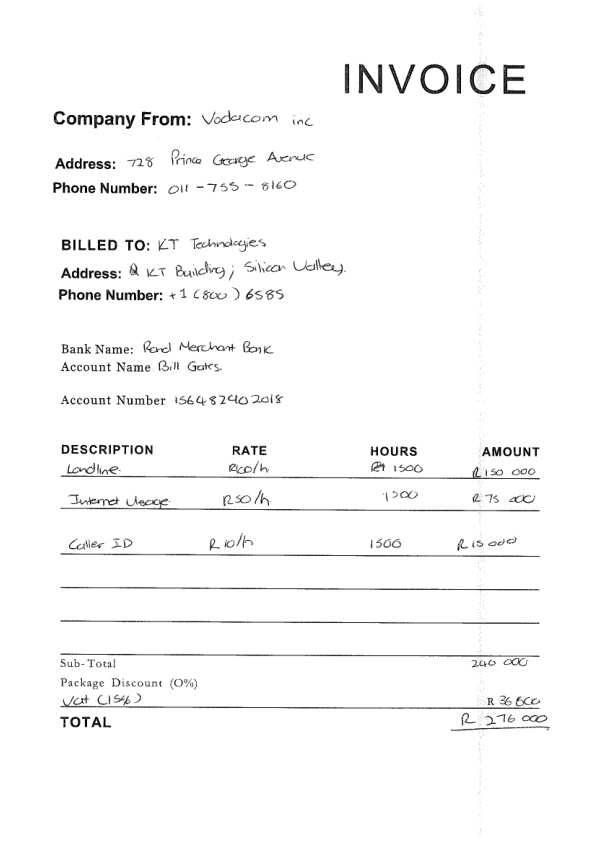 INVOICE
Company From: Vodacom inc
Address: 728 Prince George Avenue
Phone Number: 011 - 755 - 8160
BILLED TO: KT Technologies
Address: KT Building, Silicon Valley.
Phone Number: +1 (800) 6585
Bank Name: Rand Merchant Bank
Account Name Bill Gates.
Account Number 156482402018
DESCRIPTION RATE HOURS AMOUNT
Landline R100/h 1500 R 150 000
Internet Usage R50/h 1500 R 75 000
Caller ID R 10/h 1500 R 15 000
Sub-Total 240 000
Package Discount (0%)
Vat (15%) R 36 000
TOTAL R 276 000